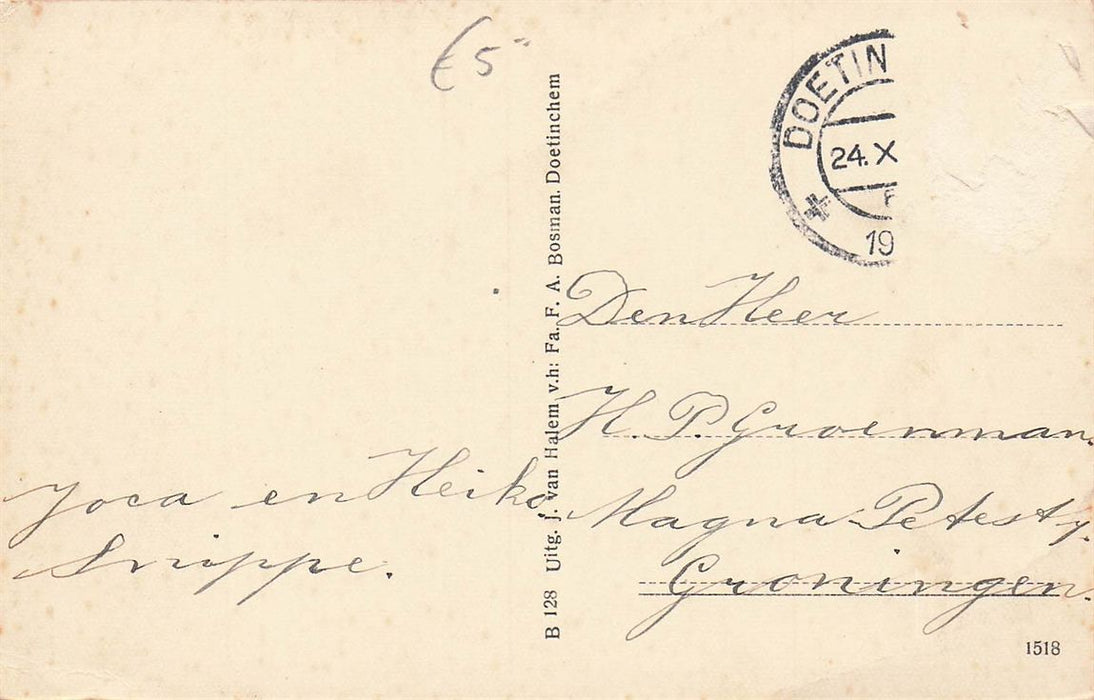 €5-
DOETIN
24.X
19
B 128 Uitg. J. van Halem v.h: Fa. F. A. Bosman. Doetinchem
Den Heer
H. P. Groenman.
Magna Petestr.
Groningen.
Joca en Heiko
Snippe.
1518